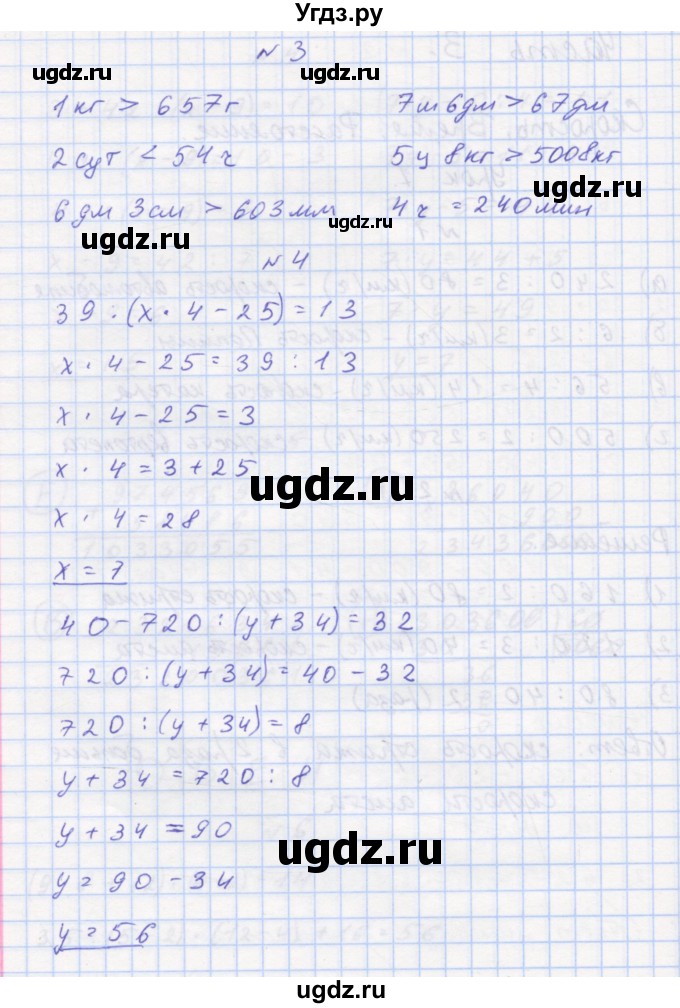 Угдз.ру
№3
1 кг > 657 г    7 м 6 дм > 67 дм
2 сут < 54 ч    5 ц 8 кг > 5008 кг
6 дм 3 см > 603 мм    4 ч = 240 мин
№4
39 : (x · 4 - 25) = 13
x · 4 - 25 = 39 : 13
x · 4 - 25 = 3
x · 4 = 3 + 25
x · 4 = 28
x = 7
40 - 720 : (y + 34) = 32
720 : (y + 34) = 40 - 32
720 : (y + 34) = 8
y + 34 = 720 : 8
y + 34 = 90
y = 90 - 34
y = 56
ugdz.ru
ugdz.ru
ugdz.ru
ugdz.ru
ugdz.ru
ugdz.ru
ugdz.ru
ugdz.ru
ugdz.ru